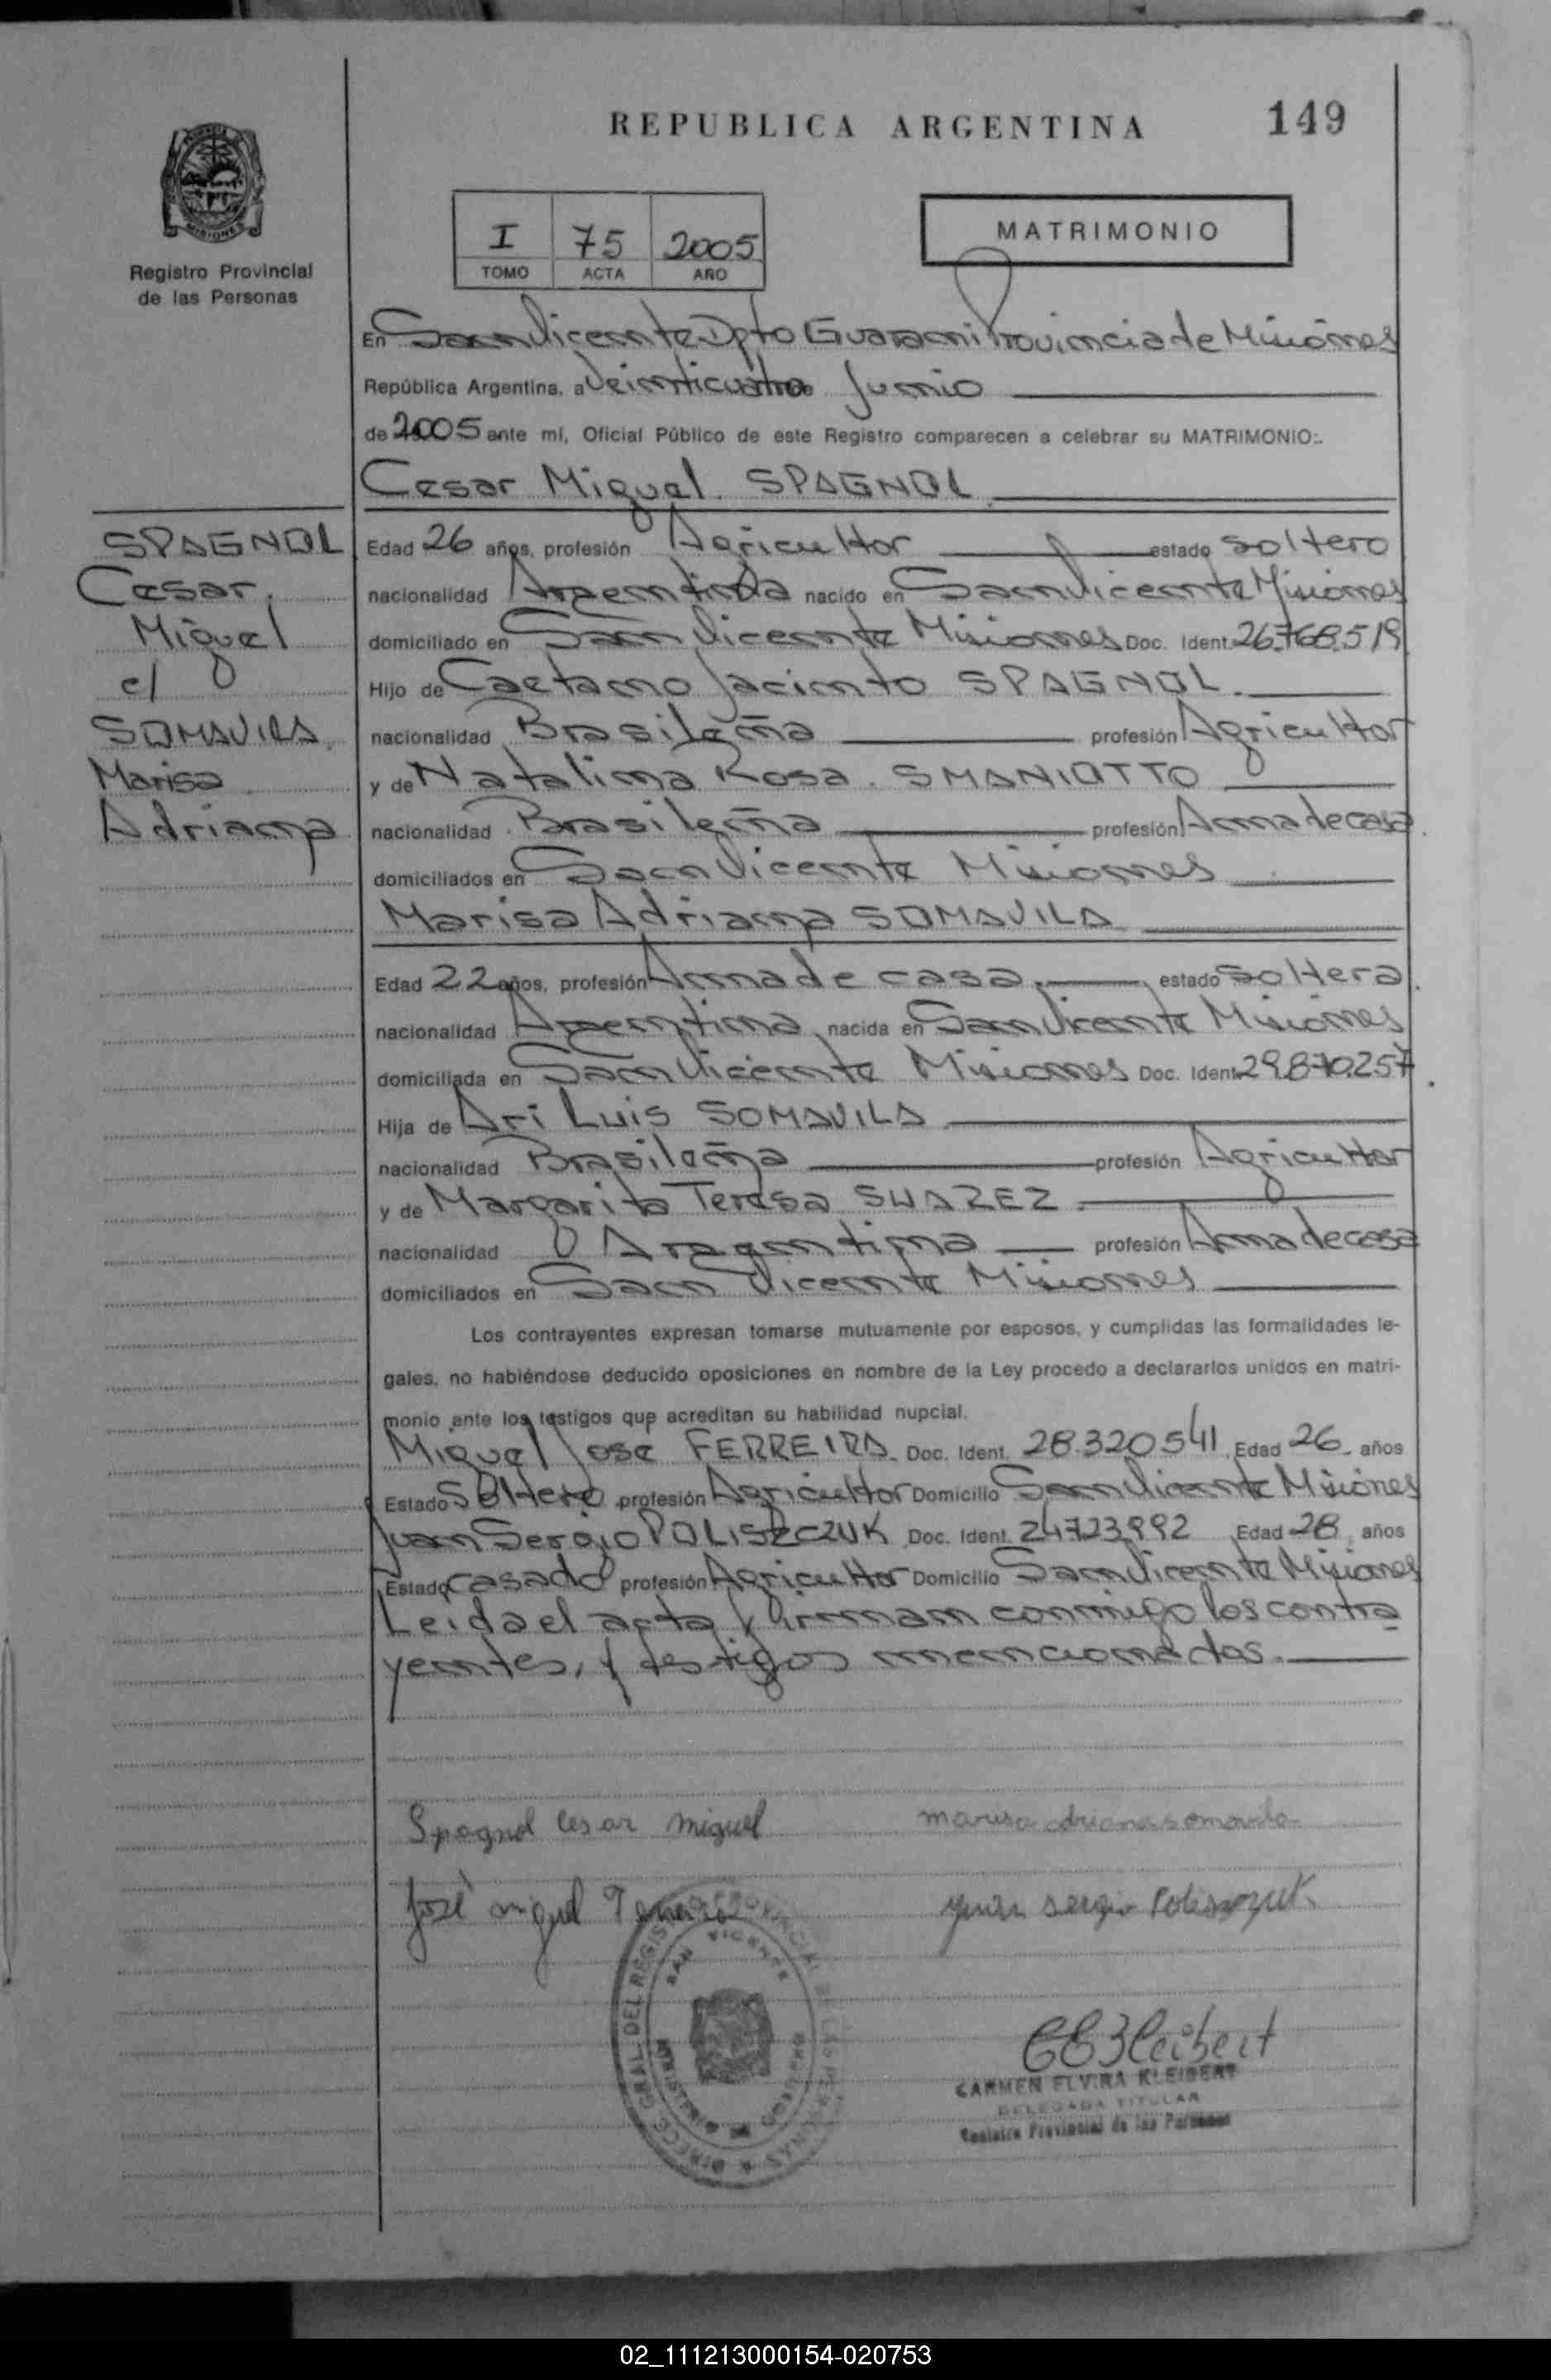 REPUBLICA ARGENTINA
149
MISIONES
Registro Provincial
de las Personas
I 75 2005
TOMO ACTA AÑO
MATRIMONIO
En San Vicente Dpto Guarani Provincia de Misiones
República Argentina, a Veinticuatro de Junio
de 2005 ante mí, Oficial Público de este Registro comparecen a celebrar su MATRIMONIO:.
Cesar Miguel SPAGNOL
SPAGNOL
Cesar
Miguel
c/
SOMAVILA
Marisa
Adriana
Edad 26 años, profesión Agricultor estado soltero
nacionalidad Argentina nacido en San Vicente Misiones
domiciliado en San Vicente Misiones Doc. Ident. 26.768.519
Hijo de Caetano Jacinto SPAGNOL.
nacionalidad Brasileña profesión Agricultor
y de Natalina Rosa. SMANIOTTO
nacionalidad Brasileña profesión Ama de casa
domiciliados en San Vicente Misiones
Marisa Adriana SOMAVILA
Edad 22 años, profesión Ama de casa. estado soltera
nacionalidad Argentina nacida en San Vicente Misiones
domiciliada en San Vicente Misiones Doc. Ident. 29.870.257
Hija de Ari Luis SOMAVILA
nacionalidad Brasileña profesión Agricultor
y de Margarita Teresa SUAREZ.
nacionalidad Argentina profesión Ama de casa
domiciliados en San Vicente Misiones
Los contrayentes expresan tomarse mutuamente por esposos, y cumplidas las formalidades le-
gales, no habiéndose deducido oposiciones en nombre de la Ley procedo a declararlos unidos en matri-
monio ante los testigos que acreditan su habilidad nupcial.
Miguel Jose FERREIRA Doc. Ident. 28.320541 Edad 26 años
Estado Soltero profesión Agricultor Domicilio San Vicente Misiones
Juan Sergio POLISZCZUK Doc. Ident. 24723992 Edad 28 años
Estado casado profesión Agricultor Domicilio San Vicente Misiones
Leida el acta, firman conmigo los contra
yentes, y testigos mencionados.
Spagnol Cesar Miguel
marisa adriana somavila
José miguel Ferreira
Juan Sergio
DIRECC. GRAL. DEL REGISTRO PROVINCIAL DE LAS PERSONAS
SAN VICENTE
CARMEN ELVIRA KLEIBERT
DELEGADA TITULAR
Registro Provincial de las Personas
02_111213000154-020753